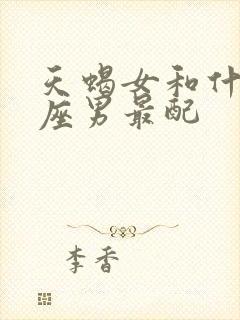 天蝎女和什
座男最配
李香